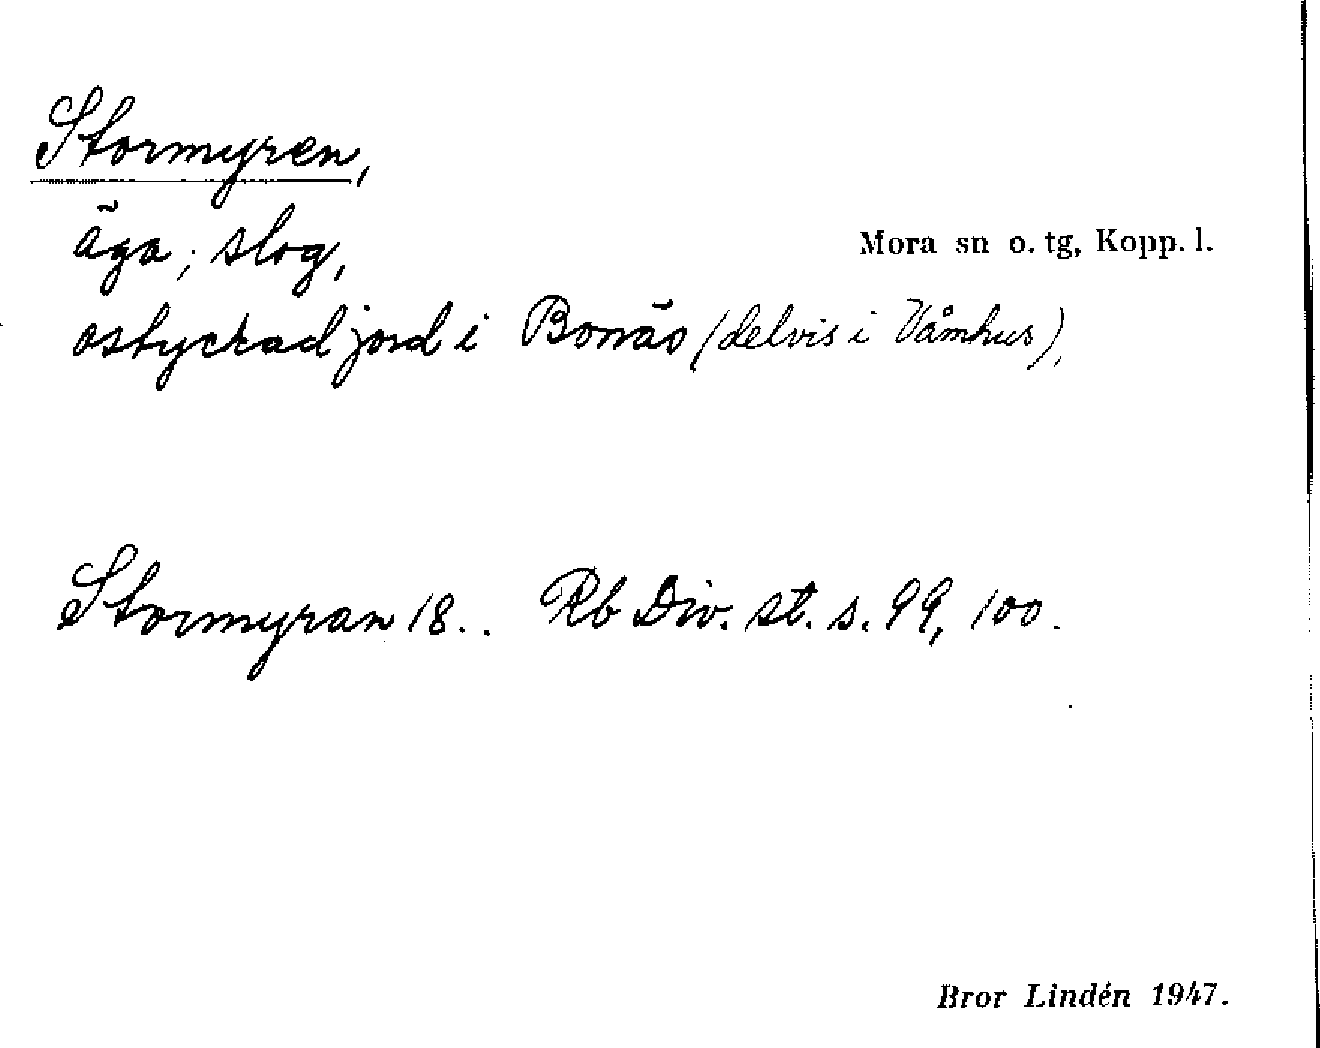 Stormyren,
äga; slog,
Mora sn o. tg, Kopp. l.
ostyckad jord i Bonäs (delvis i Våmhus),
Stormyran 18.. Rb Div. st. s. 99, 100.
Bror Lindén 1947.